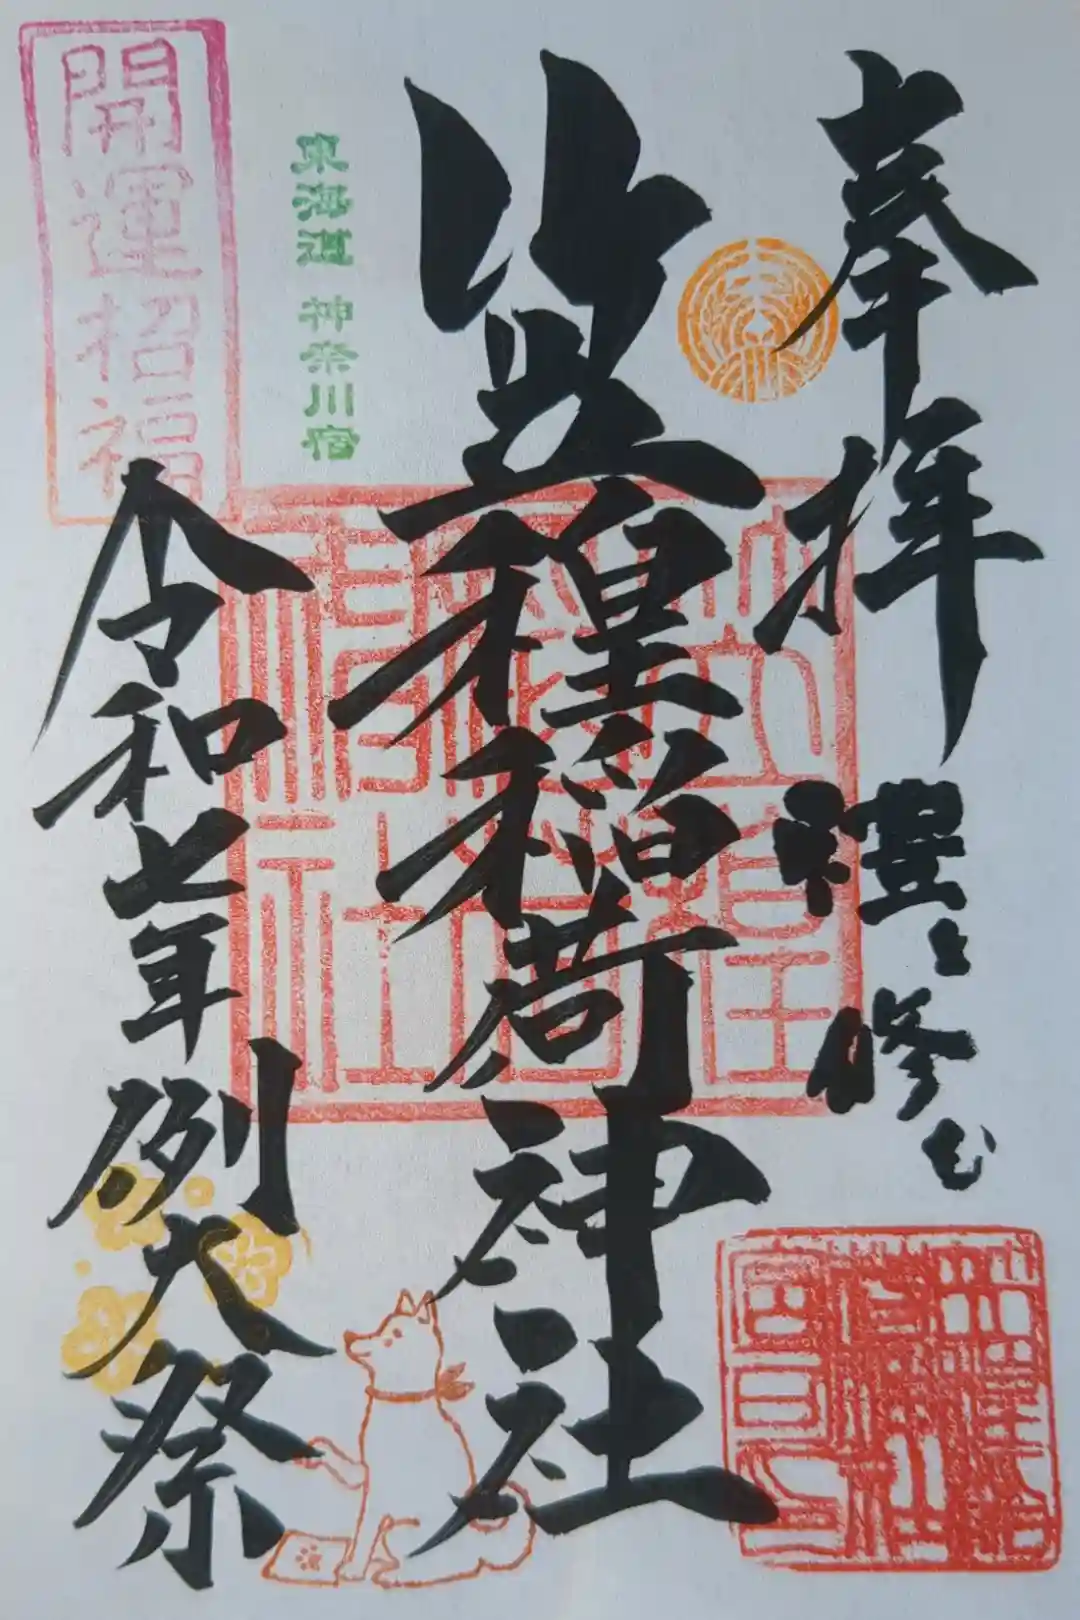 奉拝
禮と修む
笠䅣稲荷神社
東海道 神奈川宿
開運招福
令和七年例大祭
笠䅣稲荷神社